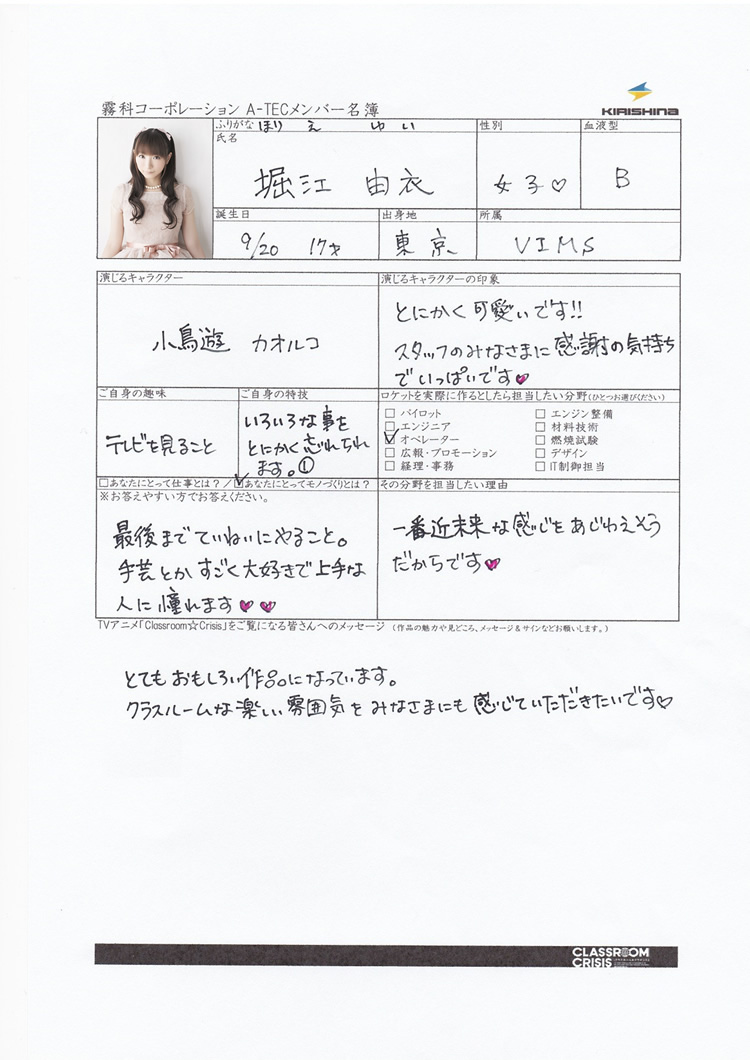 KIRISHINA
霧科コーポレーション A-TECメンバー名簿
ふりがな ほり え ゆ い
氏名
堀江 由衣
性別
女子♡
血液型
B
誕生日
9/20 17才
出身地
東京
所属
VIMS
演じるキャラクター
小鳥遊 カオルコ
演じるキャラクターの印象
とにかく可愛いです!!
スタッフのみなさまに感謝の気持ち
でいっぱいです♥
ご自身の趣味
テレビを見ること
ご自身の特技
いろいろな事を
とにかく忘れられ
ます。①
ロケットを実際に作るとしたら担当したい分野(ひとつお選びください)
□ パイロット
□ エンジニア
☑ オペレーター
□ 広報・プロモーション
□ 経理・事務
□ エンジン整備
□ 材料技術
□ 燃焼試験
□ デザイン
□ IT制御担当
□あなたにとって仕事とは?/☑あなたにとってモノづくりとは?
※お答えやすい方でお答えください。
最後までていねいにやること。
手芸とかすごく大好きで上手な
人に憧れます♥♥
その分野を担当したい理由
一番近未来な感じをあじわえそう
だからです♥
TVアニメ「Classroom☆Crisis」をご覧になる皆さんへのメッセージ (作品の魅力や見どころ、メッセージ&サインなどお願いします。)
とてもおもしろい作品になっています。
クラスルームな楽しい雰囲気をみなさまにも感じていただきたいです♡
CLASSROOM
CRISIS